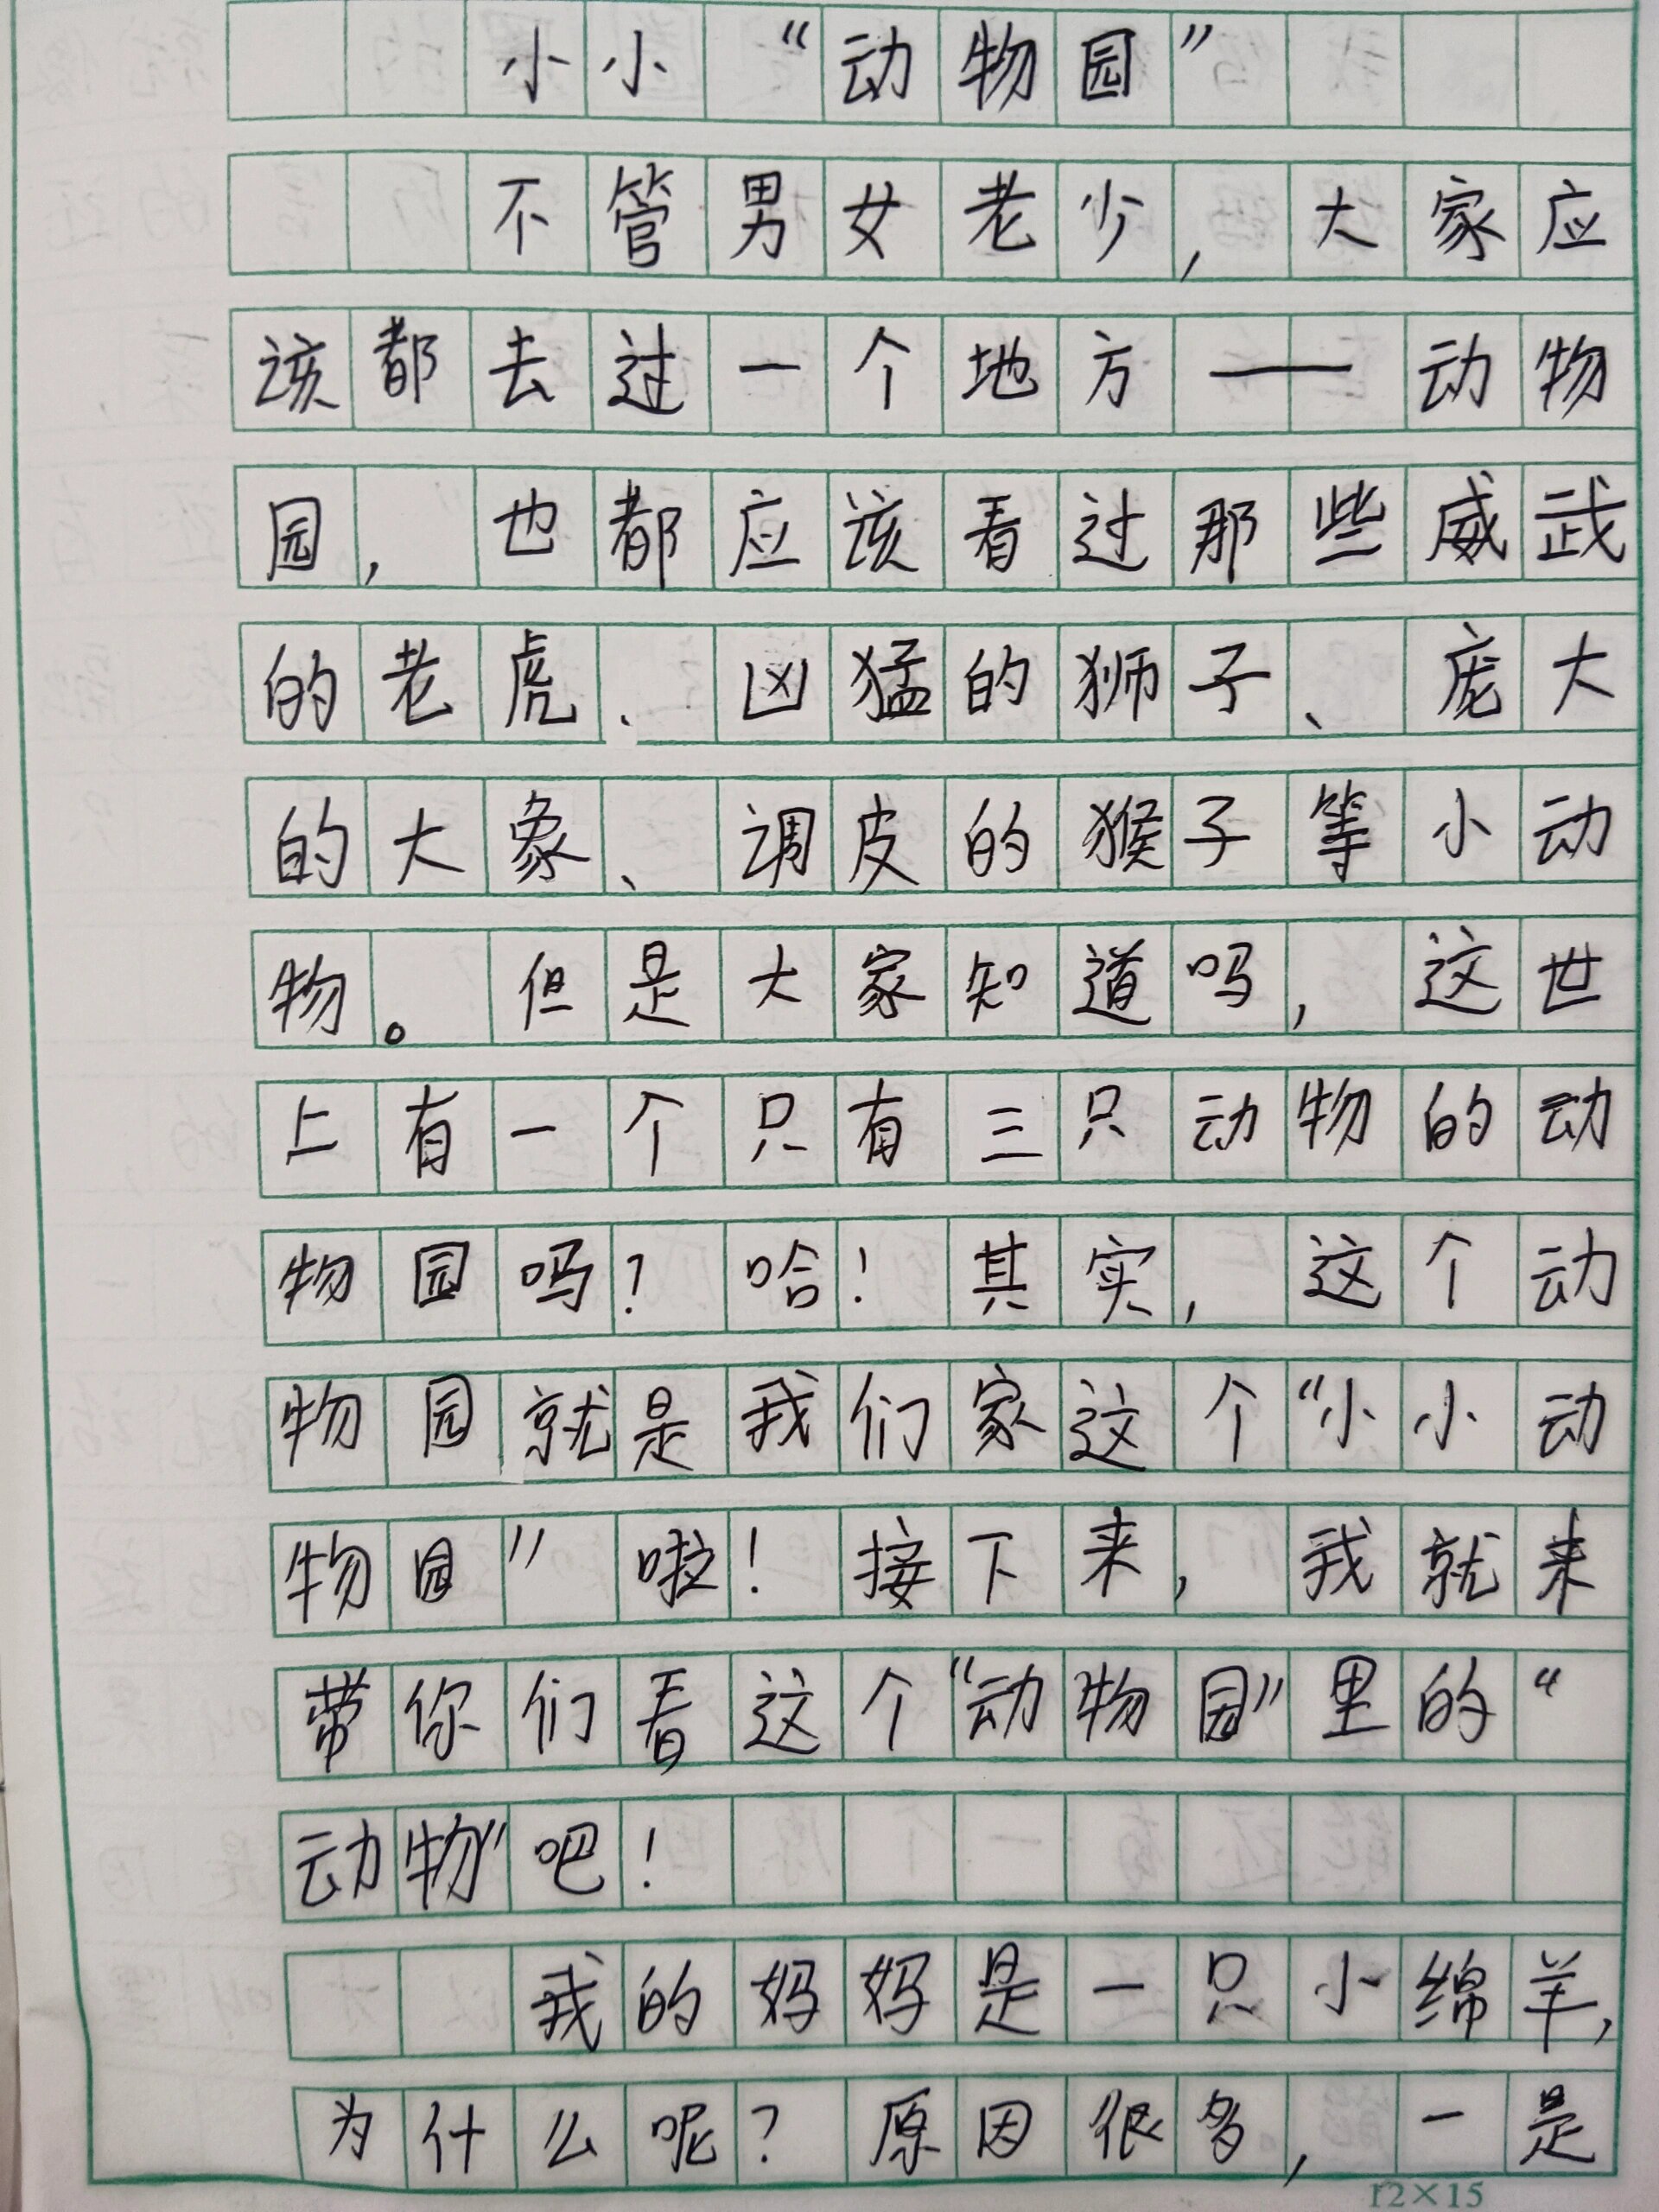 小小“动物园”
不管男女老少，大家应
该都去过一个地方——动物
园，也都应该看过那些威武
的老虎、凶猛的狮子、庞大
的大象、调皮的猴子等小动
物。但是大家知道吗，这世
上有一个只有三只动物的动
物园吗？哈！其实，这个动
物园就是我们家这个“小小动
物园”啦！接下来，我就来
带你们看这个“动物园”里的“
动物”吧！
我的妈妈是一只小绵羊，
为什么呢？原因很多，一是
12×15